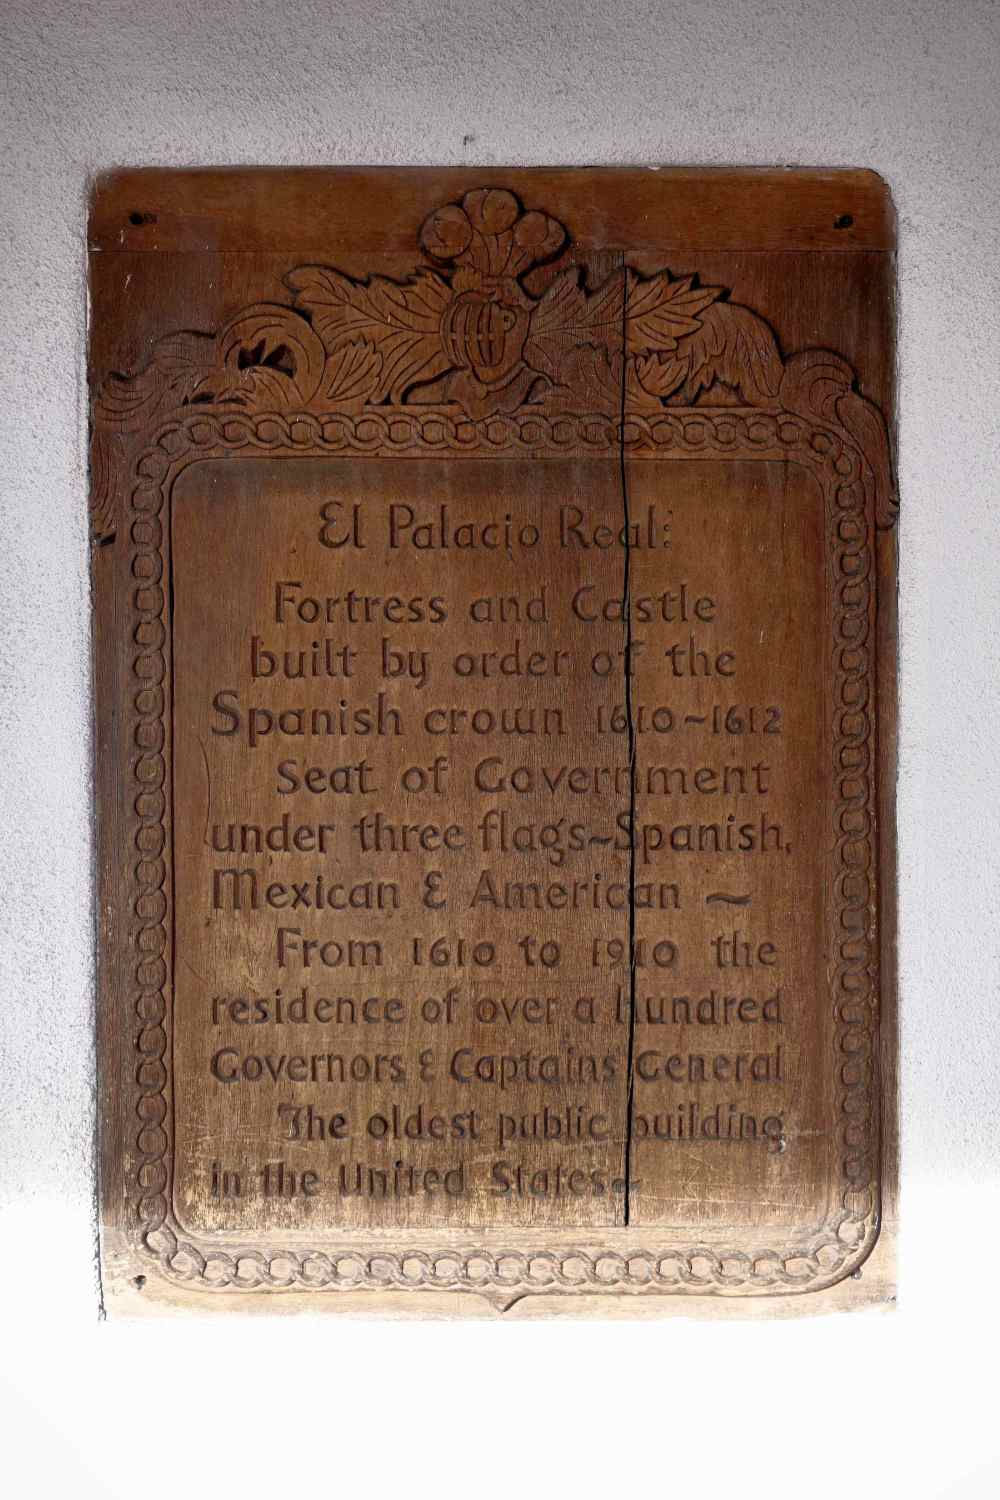 El Palacio Real:
Fortress and Castle
built by order of the
Spanish crown 1610~1612
Seat of Government
under three flags~Spanish,
Mexican & American ~
From 1610 to 1910 the
residence of over a hundred
Governors & Captains General
The oldest public building
in the United States~